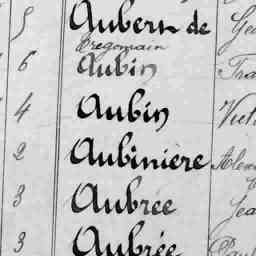 5 Aubern de Gea
Tregomain
6 Aubin Fra
4 Aubin Vict
2 Aubiniere Alex
3 Aubrée Jea
3 Aubrée Paul